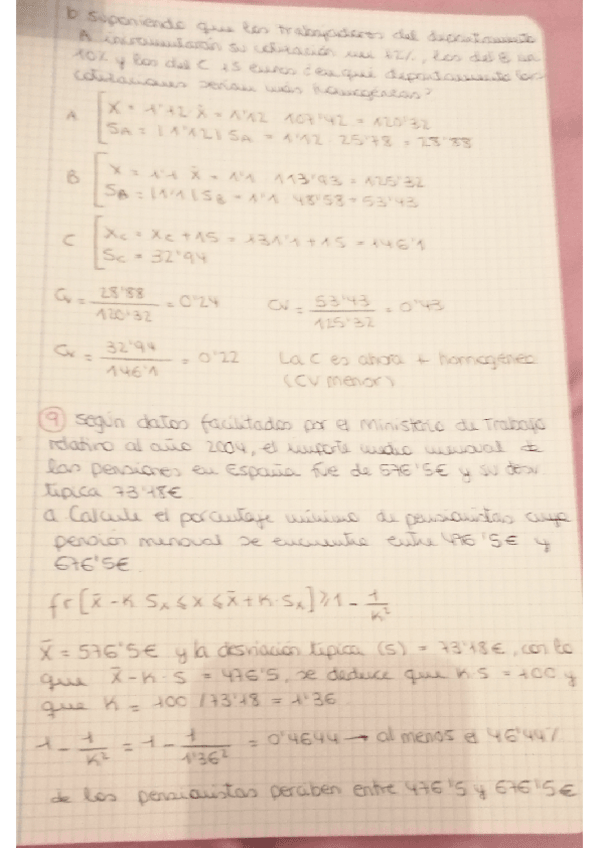 b Suponiendo que los trabajadores del departamento
A incrementarán su cotización un 12%, los del B un
10% y los del C 15 euros ¿en qué departamento las
cotizaciones serían más homogéneas?
A [ X = 1'12 x̄ = 1'12 107'42 = 120'32
S_A = |1'12| S_A = 1'12 · 25'78 = 28'88
B [ X = 1'1 x̄ = 1'1 113'93 = 125'32
S_B = |1'1| S_B = 1'1 48'58 = 53'43
C [ X_C = X_C + 15 = 131'1 + 15 = 146'1
S_C = 32'94
Cv = 28'88 / 120'32 = 0'24 CV = 53'43 / 125'32 = 0'43
Cv = 32'94 / 146'1 = 0'22 La C es ahora + homogénea
(CV menor)
9 Según datos facilitados por el Ministerio de Trabajo
relativo al año 2004, el importe medio mensual de
las pensiones en España fue de 576'5€ y su desv
típica 73'18€
a Calcule el porcentaje mínimo de pensionistas cuya
pensión mensual se encuentra entre 476'5€ y
676'5€.
fr[x̄ - K S_x ≤ x ≤ x̄ + K · S_x] ≥ 1 - 1/K²
x̄ = 576'5€ y la desviación típica (S) = 73'18€, con lo
que x̄ - K · S = 476'5, se deduce que K S = 100 y
que K = 100 / 73'18 = 1'36
1 - 1/K² = 1 - 1/1'36² = 0'4644 → al menos el 46'44%
de los pensionistas perciben entre 476'5 y 676'5€